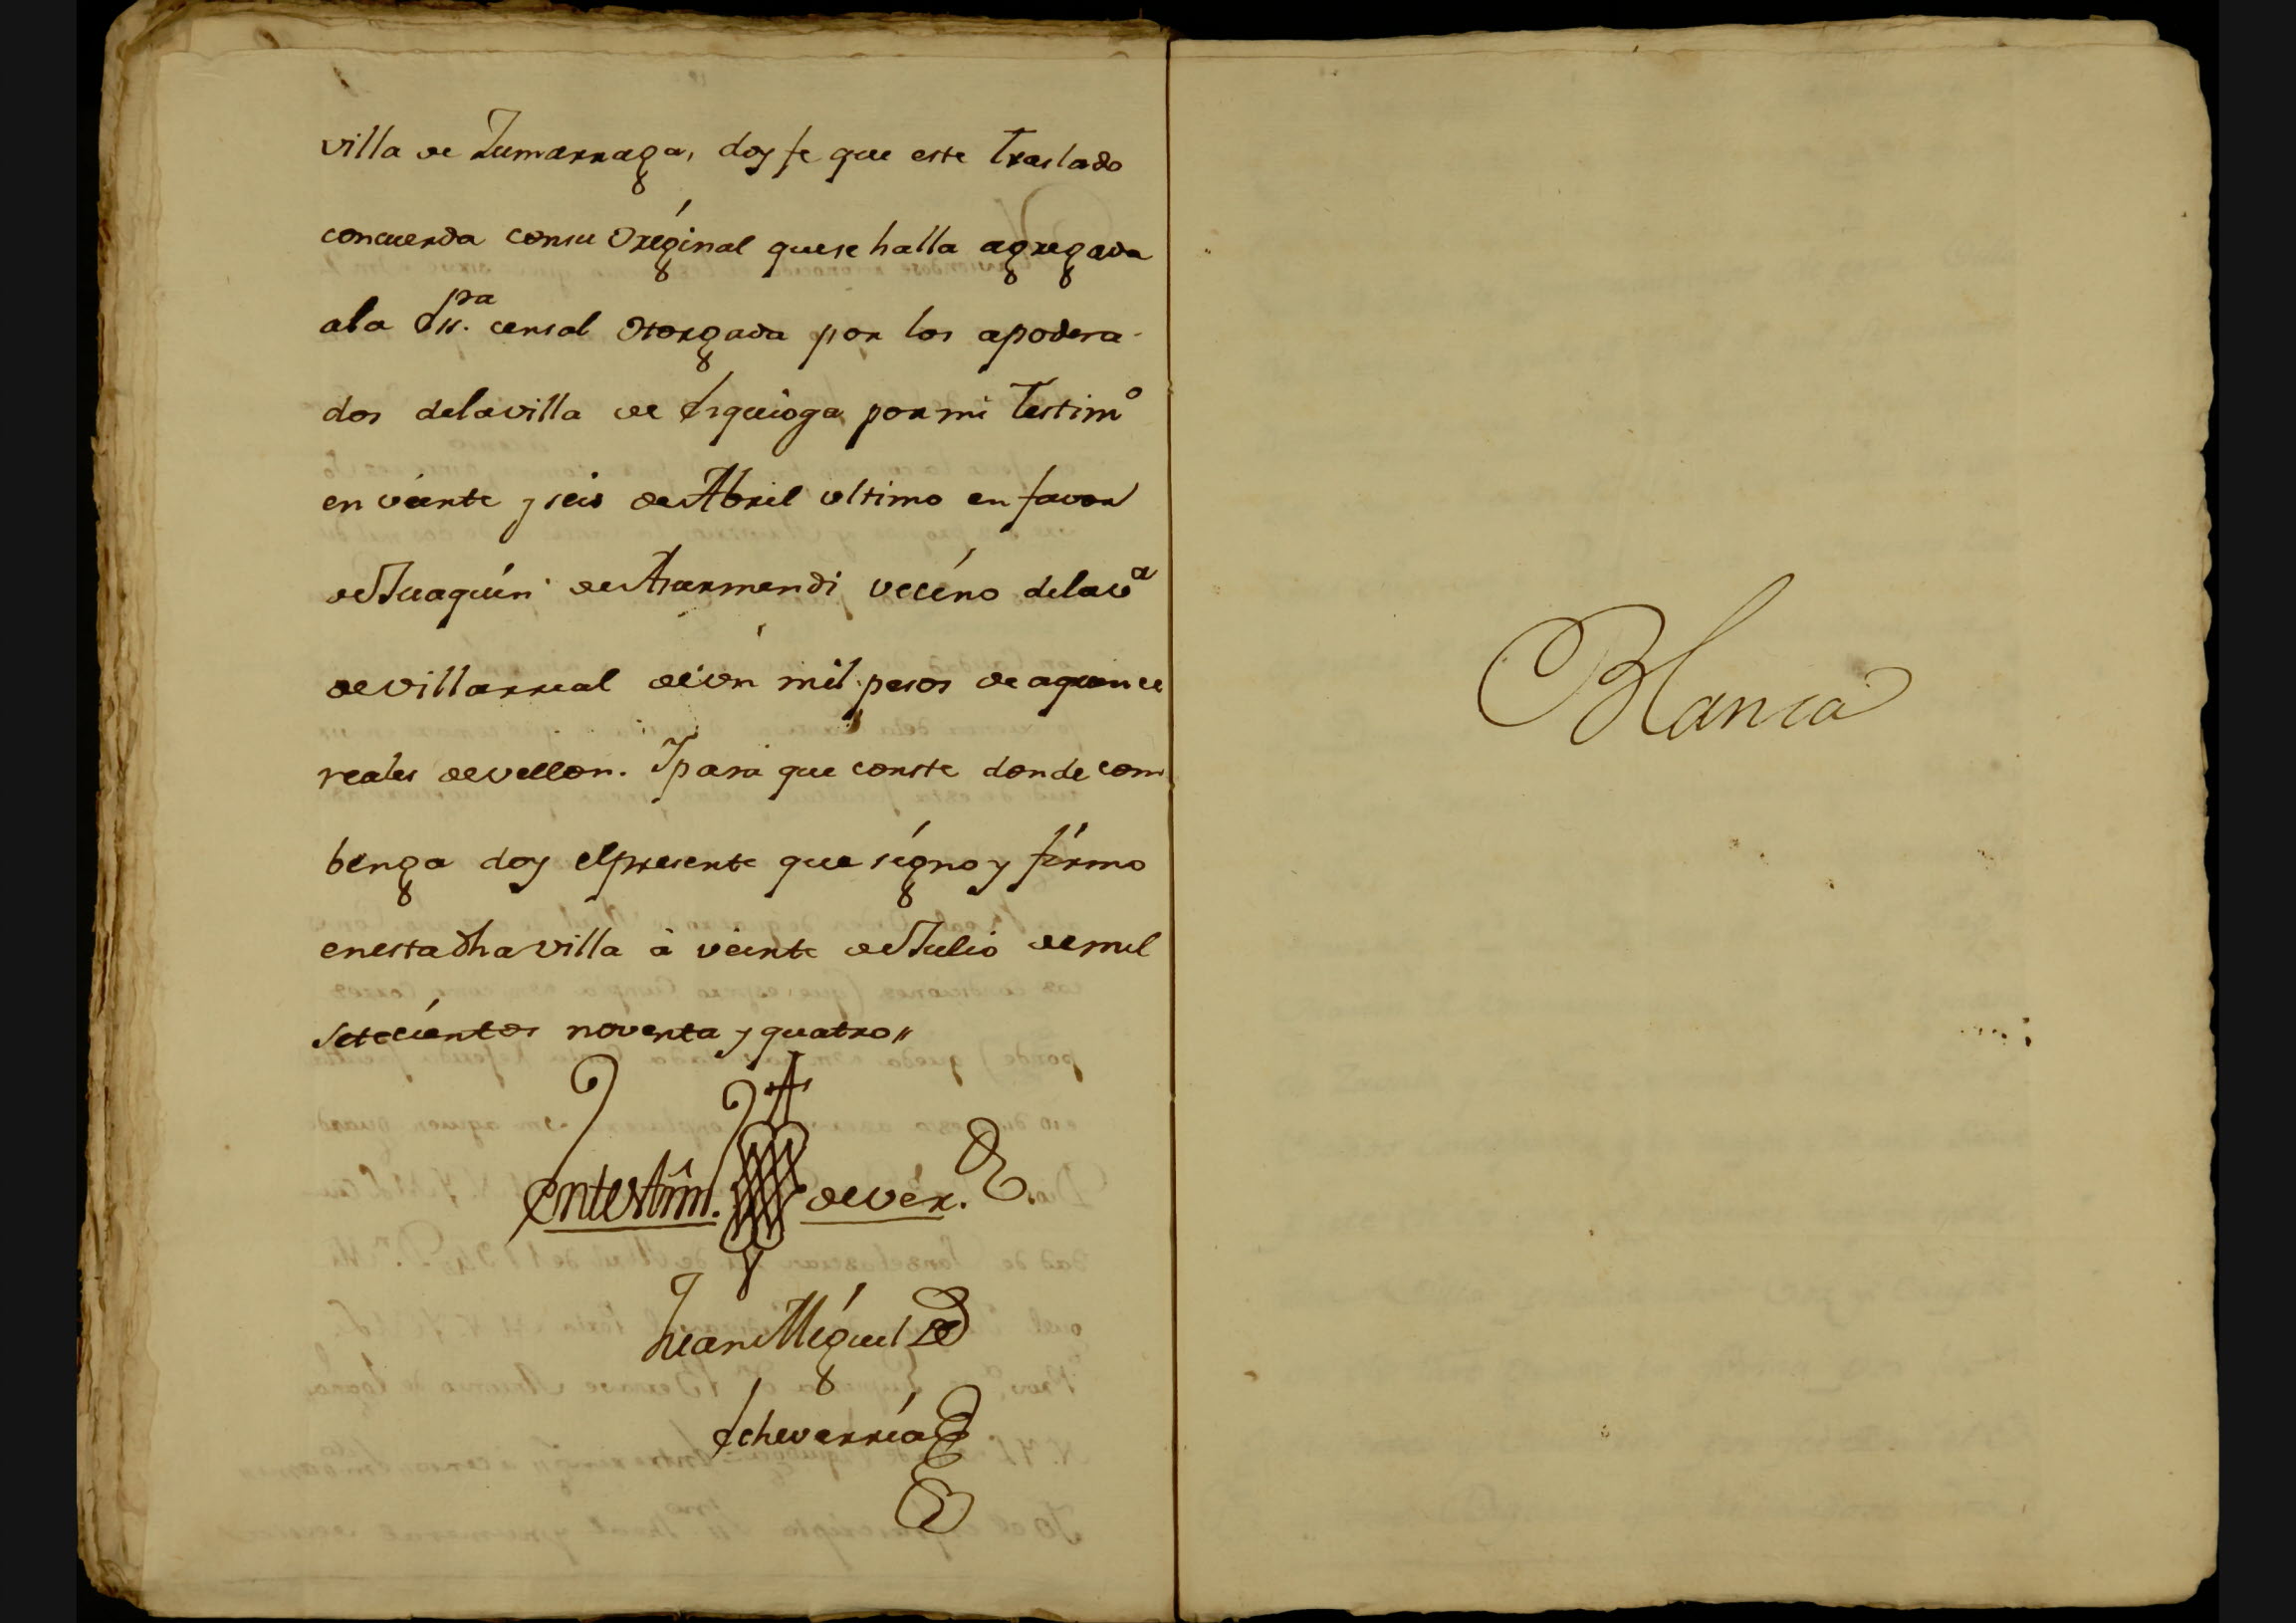 villa de Zumarraga, doy fe que este Traslado
concuerda consu Original quese halla agregada
ala Ess.pra censal Otorgada por los apodera-
dos delavilla de Esquioga por mi Testimo
en veinte y seis de Abril ultimo en favor
de Juaquin de Asarmendi vecino delava
de Villarreal de un mil pesos de aquince
reales de vellon. Ypara que conste donde com
benga doy elpresente que signo y firmo
enesta dha villa à veinte de Julio de mil
Setecientos noventa y quatro,,
Entestim. de ver.
Juan Miguel de
Echeverria
Blanca